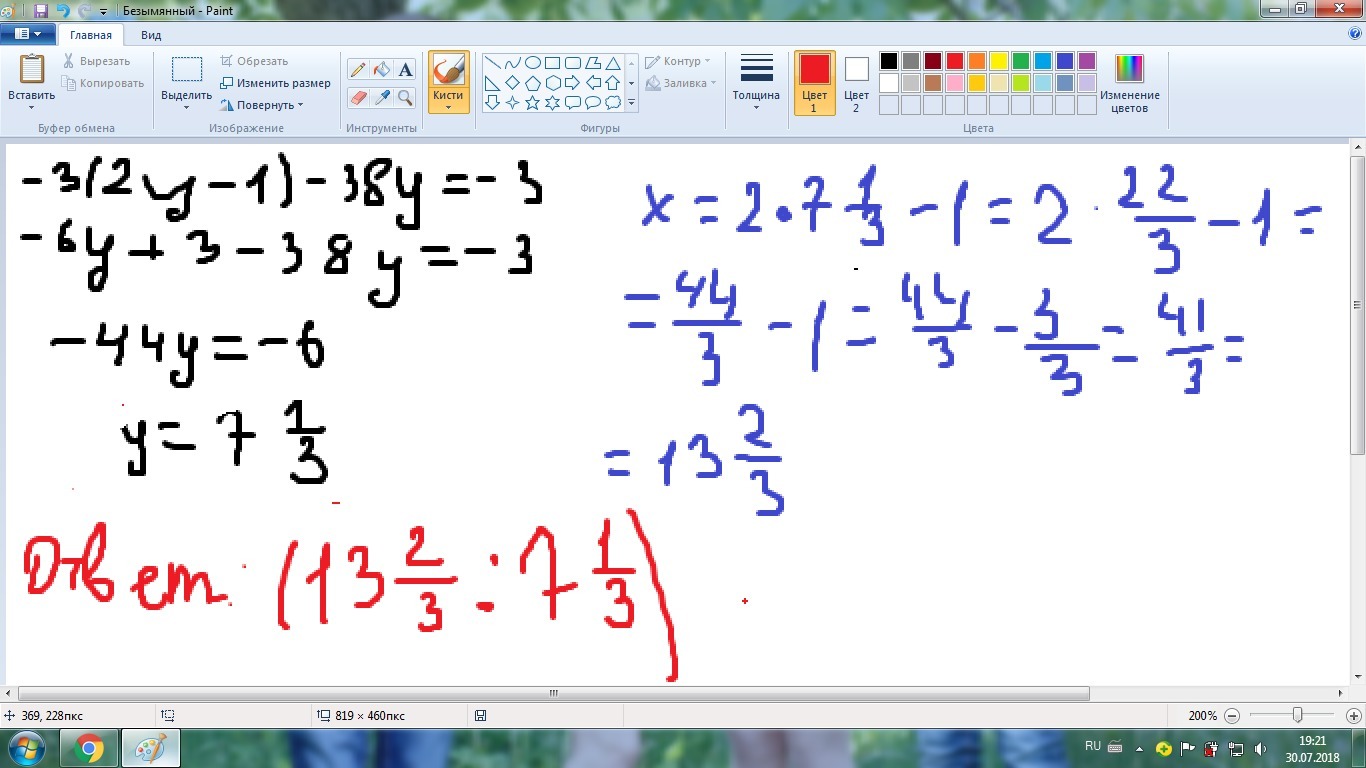 Безымянный - Paint
Главная Вид
Вставить
Вырезать
Копировать
Буфер обмена
Выделить
Обрезать
Изменить размер
Повернуть
Изображение
A
Инструменты
Кисти
Контур
Заливка
Фигуры
Толщина
Цвет 1
Цвет 2
Изменение цветов
Цвета
-3(2y-1)-38y=-3
-6y+3-38y=-3
-44y=-6
y=7 1/3
x=2·7 1/3-1=2·22/3-1=
=44/3-1=44/3-3/3=41/3=
=13 2/3
Ответ: (13 2/3 : 7 1/3)
369, 228пкс
819 × 460пкс
200%
RU
19:21
30.07.2018